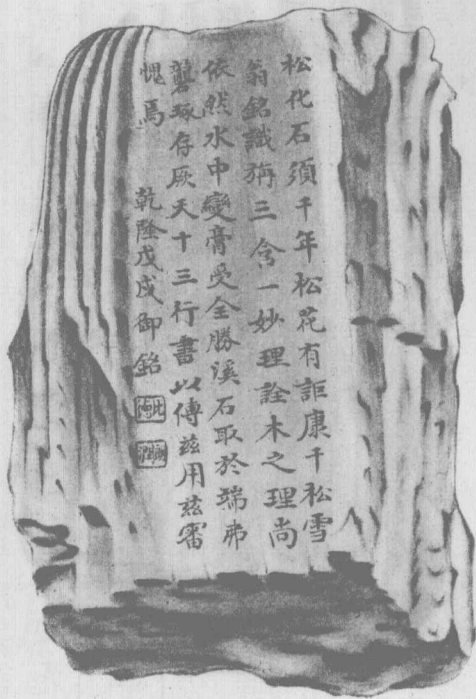 松化石須千年松花有詎康千松雪
翁銘識稱三含一妙理詮木之理尚
依然水中變膏受全勝溪石取於端弗
礱琢存厥天十三行書以傳茲用茲審
愧焉 乾隆戊戌御銘
比德
朗潤